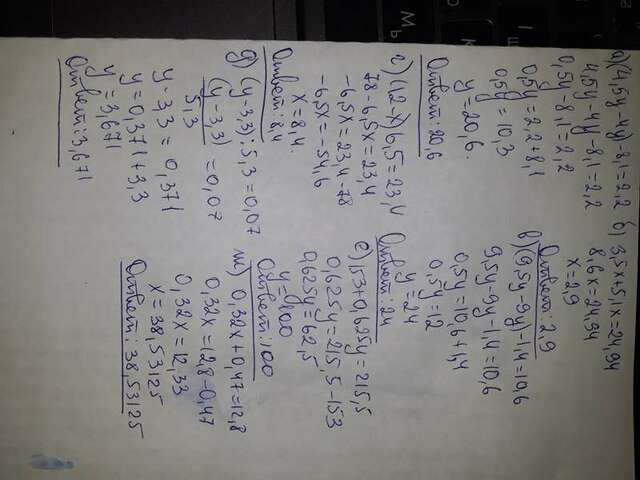 а) (4,5y-4y)-8,1=2,2
4,5y-4y-8,1=2,2
0,5y-8,1=2,2
0,5y=2,2+8,1
0,5y=10,3
y=20,6.
Ответ: 20,6
б) 3,5x+5,1x=24,94
8,6x=24,94
x=2,9
Ответ: 2,9
в) (9,5y-9y)-1,4=10,6
9,5y-9y-1,4=10,6
0,5y=10,6+1,4
0,5y=12
y=24
Ответ: 24
г) (12-x)6,5=23,4
78-6,5x=23,4
-6,5x=23,4-78
-6,5x=-54,6
x=8,4.
Ответ: 8,4
д) (y-3,3):5,3=0,07
(y-3,3)
5,3 = 0,07
y-3,3=0,371
y=0,371+3,3
y=3,671
Ответ: 3,671
е) 153+0,625y=215,5
0,625y=215,5-153
0,625y=62,5
y=100
Ответ: 100
ж) 0,32x+0,47=12,8
0,32x=12,8-0,47
0,32x=12,33
x=38,53125
Ответ: 38,53125